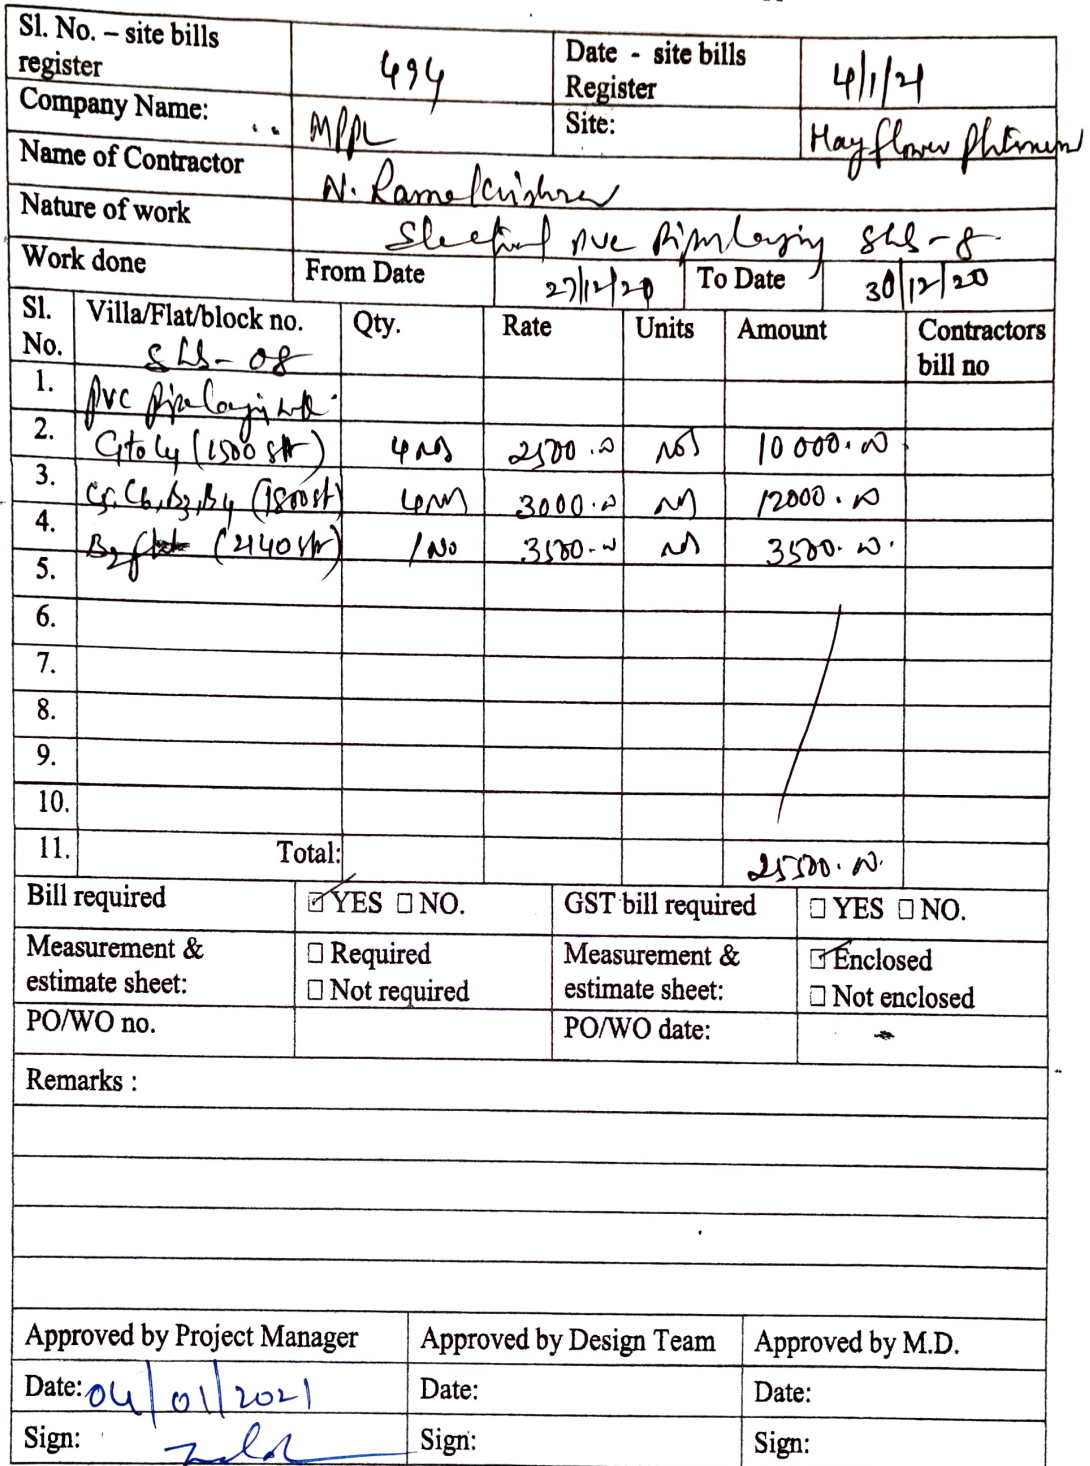 Sl. No. – site bills register 494 Date - site bills Register 4/1/21
Company Name: MPPL Site: Mayflower Platinum
Name of Contractor N. Ramakrishna
Nature of work Electrical PVC Pipe laying Slab-8
Work done From Date 27/12/20 To Date 30/12/20
Sl. No. Villa/Flat/block no. Qty. Rate Units Amount Contractors bill no
Slab-08
1. PVC Pipe laying
2. C1 to C4 (1500 sft) 4 Nos 2500.00 Nos 10000.00
3. C5, C6, B3, B4 (1800 sft) 4 Nos 3000.00 Nos 12000.00
4. B2 (2140 sft) 1 No 3500.00 Nos 3500.00
5.
6.
7.
8.
9.
10.
11. Total: 25500.00
Bill required YES NO. GST bill required YES NO.
Measurement & estimate sheet: Required Not required Measurement & estimate sheet: Enclosed Not enclosed
PO/WO no. PO/WO date:
Remarks :
Approved by Project Manager Approved by Design Team Approved by M.D.
Date: 04/01/2021 Date: Date:
Sign: Sign: Sign: